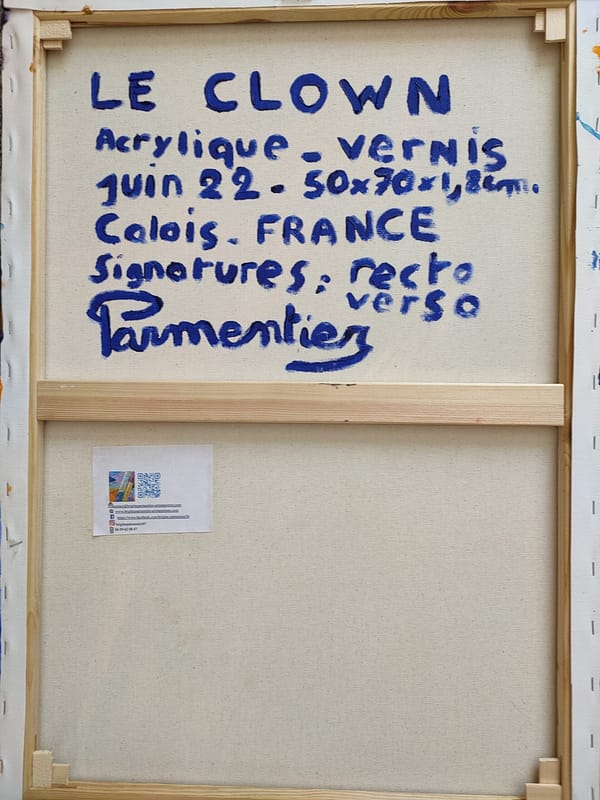 LE CLOWN
Acrylique - vernis
juin 22 - 50x70x1,8cm.
Calais - FRANCE
Signatures: recto
verso
Parmentier